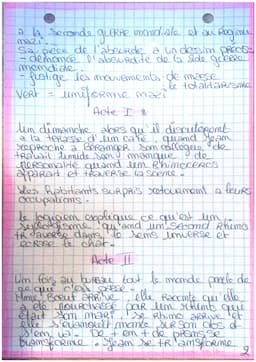 à la seconde guerre mondiale et au régime
nazi.
Sa pièce de l'absurde a un dessin précis
- démonce l'absurdité de la 2de guerre
mondiale.
- fustige les mouvements de masse
le totalitarisme
Vert = uniforme nazi
Acte I
Um dimanche, alors qu'il discutèrent
à la terasse d'um café, quand Jean
reproche à Berenger son collègue de
travail timide son manque de
personalité quand um Rhimoceros
apparait et traverse la scène.
Les habitants surpris retournent à leurs
occupations.
Le logicien explique ce qu'est um
syllogisme, quand um second Rhimo
traverse dans le sens inverse et
écrase le chat.
Acte II
Um fois au bureau tout le monde parle de
ce qui s'est passé.
Mme Boeuf arrive, elle raconte qu'elle
a été pourchassé par um rhimo qui
était son mari, le rhimo arrive et
elle s'évanouit monte sur son dos et
s'en va. De + en + de persones se
transforme. Jean se transforme.
2